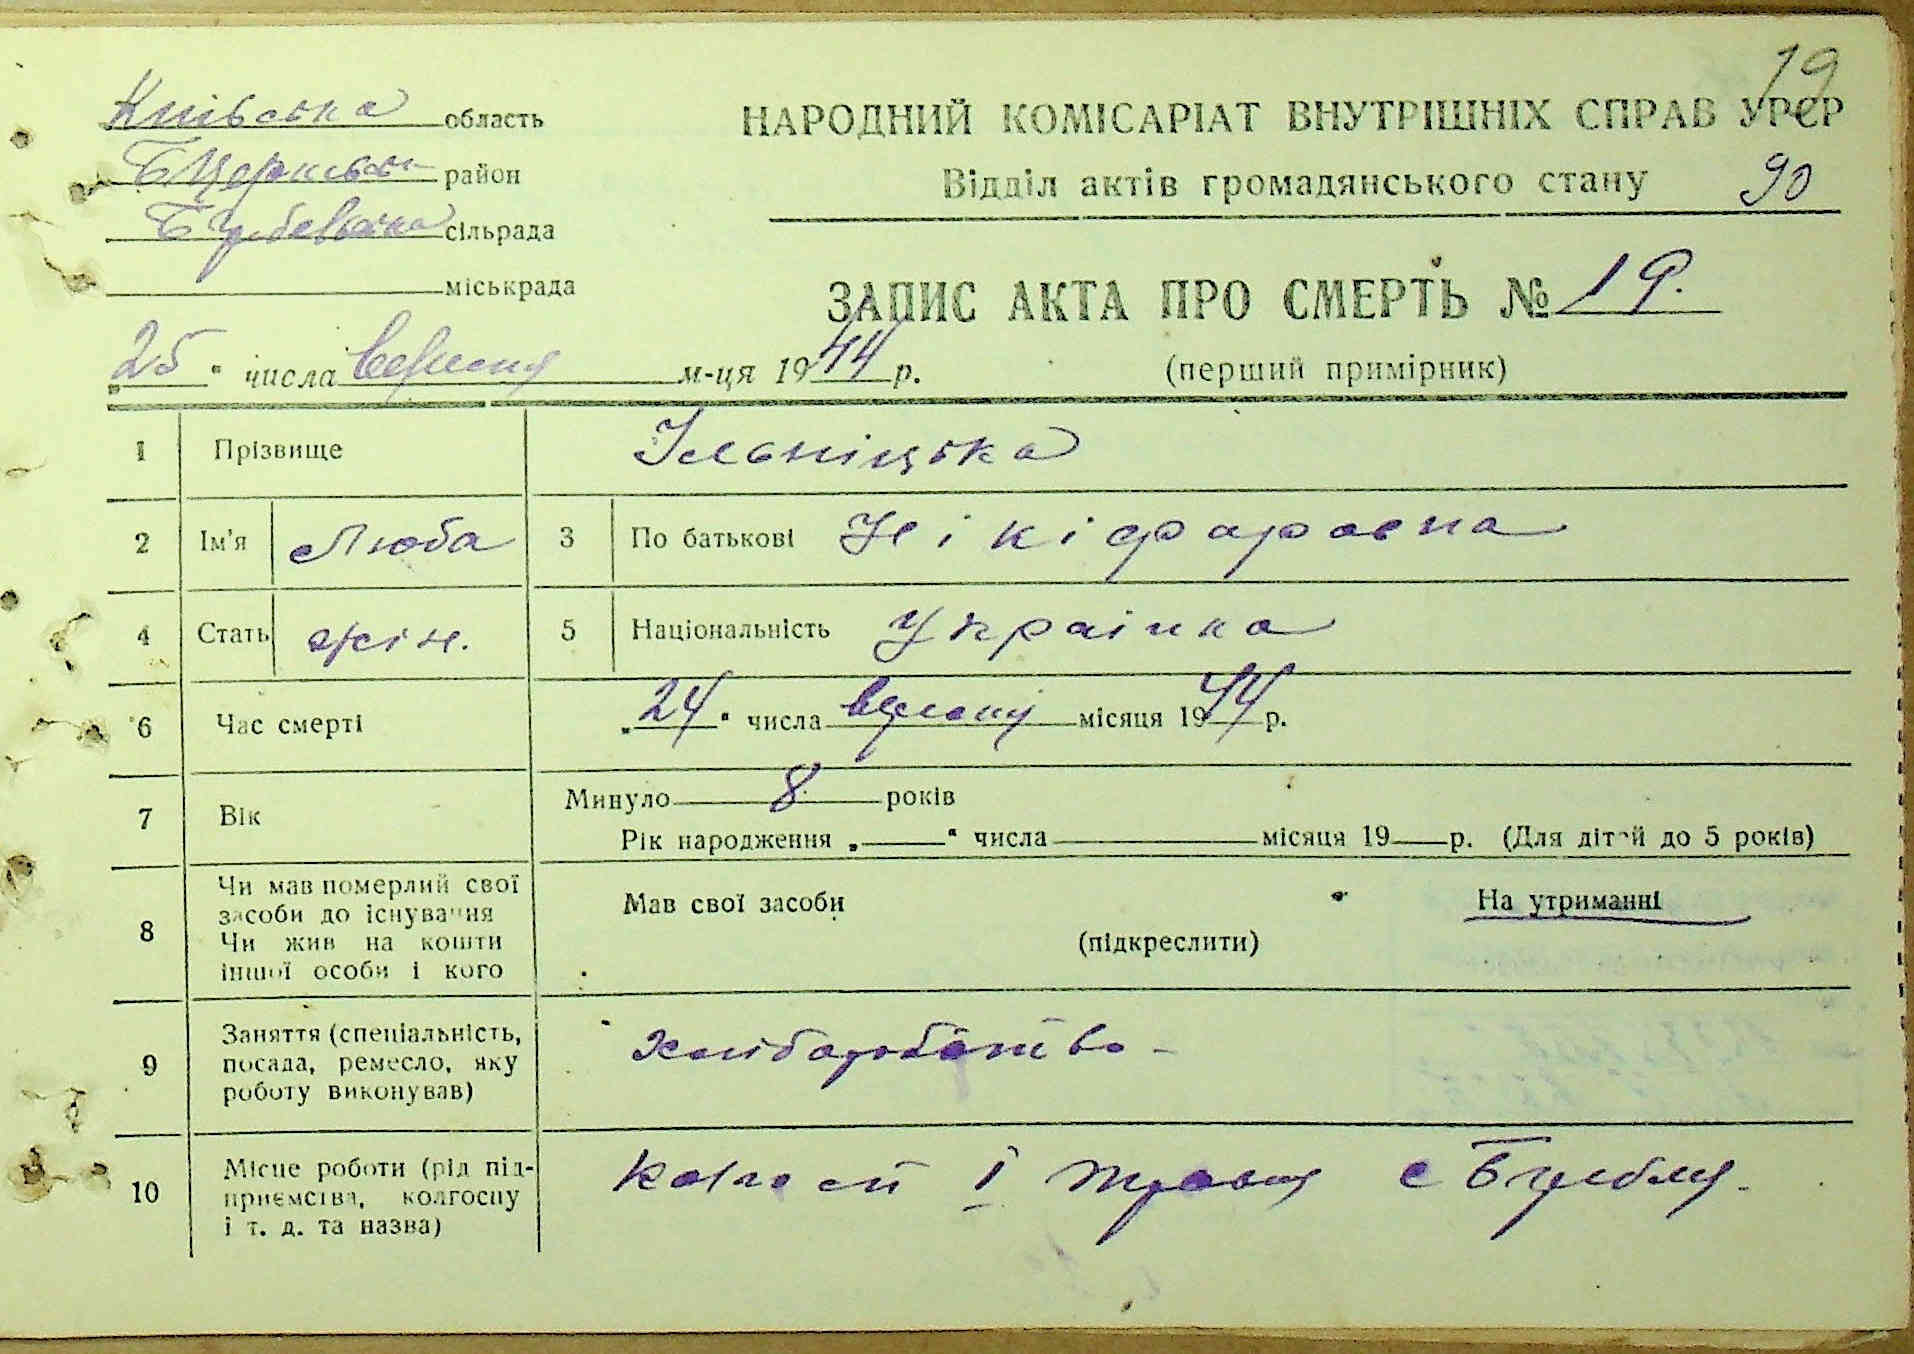 19
Київська область
НАРОДНИЙ КОМІСАРІАТ ВНУТРІШНІХ СПРАВ УРСР
Б Церківськ район
Відділ актів громадянського стану 90
сільрада
міськрада
ЗАПИС АКТА ПРО СМЕРТЬ № 19.
„25" числа вересня м-ця 1944 р.
(перший примірник)
1 Прізвище Ільніцька
2 Ім'я Люба 3 По батькові Нікіфаровна
4 Стать жін. 5 Національність Українка
6 Час смерті „24" числа вересня місяця 1944 р.
7 Вік Минуло 8 років
Рік народження „ " числа місяця 19 р. (Для дітей до 5 років)
8 Чи мав померлий свої
засоби до існування
Чи жив на кошти
іншої особи і кого
Мав свої засоби На утриманні
(підкреслити)
9 Заняття (спеціальність,
посада, ремесло, яку
роботу виконував)
хліборобство -
10 Місце роботи (рід під-
приємства, колгоспу
і т. д. та назва)
колгосп І травня с